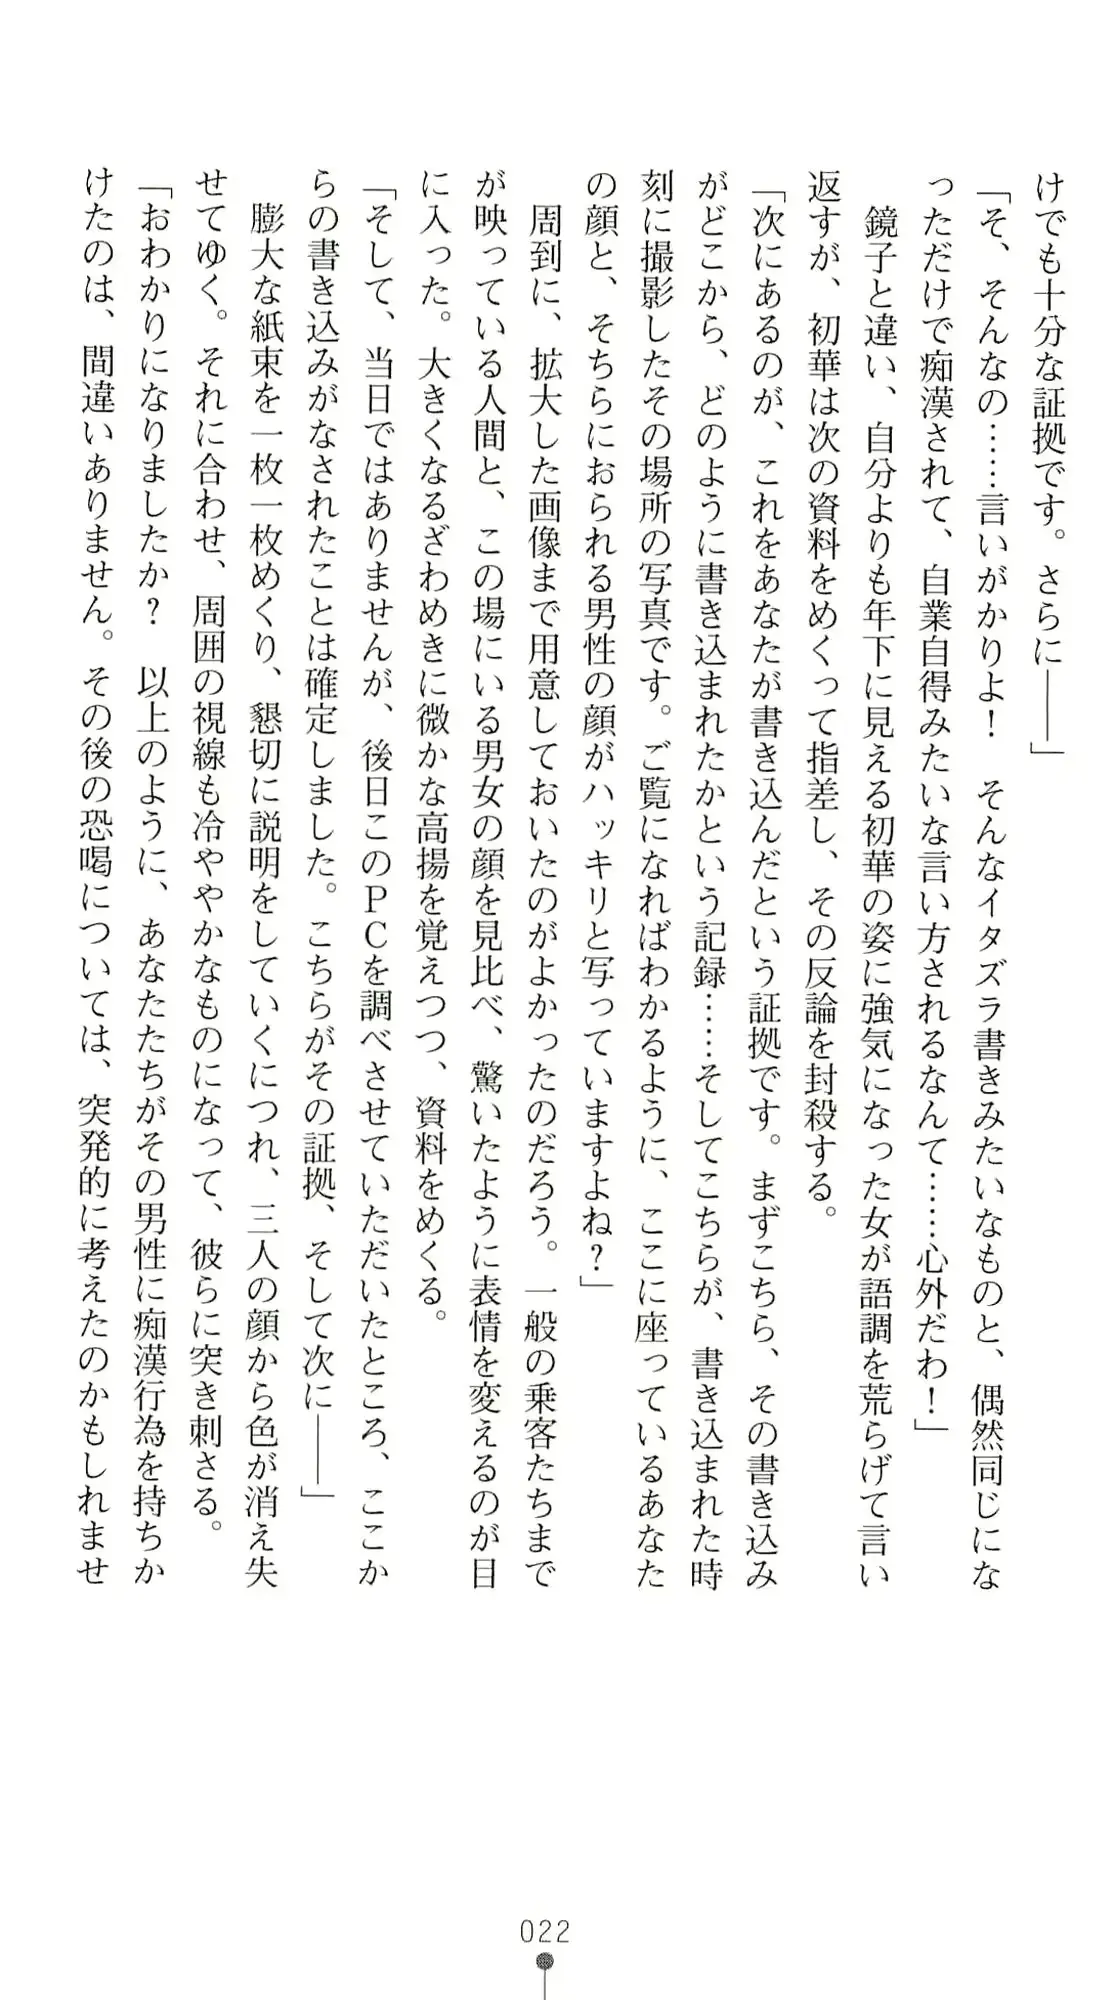 けでも十分な証拠です。さらに――」
「そ、そんなの……言いがかりよ！　そんなイタズラ書きみたいなものと、偶然同じにな
っただけで痴漢されて、自業自得みたいな言い方されるなんて……心外だわ！」
　鏡子と違い、自分よりも年下に見える初華の姿に強気になった女が語調を荒らげて言い
返すが、初華は次の資料をめくって指差し、その反論を封殺する。
「次にあるのが、これをあなたが書き込んだという証拠です。まずこちら、その書き込み
がどこから、どのように書き込まれたかという記録……そしてこちらが、書き込まれた時
刻に撮影したその場所の写真です。ご覧になればわかるように、ここに座っているあなた
の顔と、そちらにおられる男性の顔がハッキリと写っていますよね？」
　周到に、拡大した画像まで用意しておいたのがよかったのだろう。一般の乗客たちまで
が映っている人間と、この場にいる男女の顔を見比べ、驚いたように表情を変えるのが目
に入った。大きくなるざわめきに微かな高揚を覚えつつ、資料をめくる。
「そして、当日ではありませんが、後日このＰＣを調べさせていただいたところ、ここか
らの書き込みがなされたことは確定しました。こちらがその証拠、そして次に――」
　膨大な紙束を一枚一枚めくり、懇切に説明をしていくにつれ、三人の顔から色が消え失
せてゆく。それに合わせ、周囲の視線も冷ややかなものになって、彼らに突き刺さる。
「おわかりになりましたか？　以上のように、あなたたちがその男性に痴漢行為を持ちか
けたのは、間違いありません。その後の恐喝については、突発的に考えたのかもしれませ
022